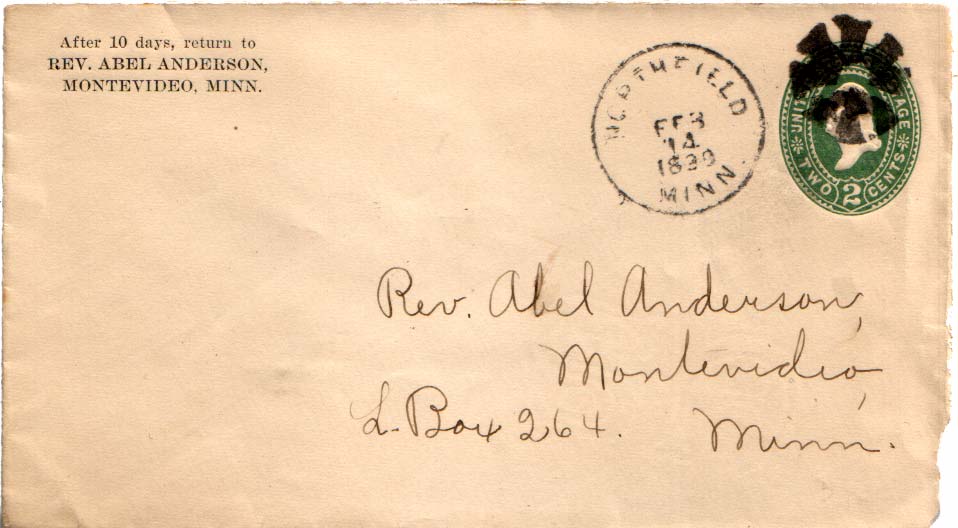 After 10 days, return to
REV. ABEL ANDERSON,
MONTEVIDEO, MINN.
NORTHFIELD
FEB
14
1899
MINN.
UNITED POSTAGE
TWO 2 CENTS
Rev. Abel Anderson,
Montevideo,
L. Box 264. Minn.